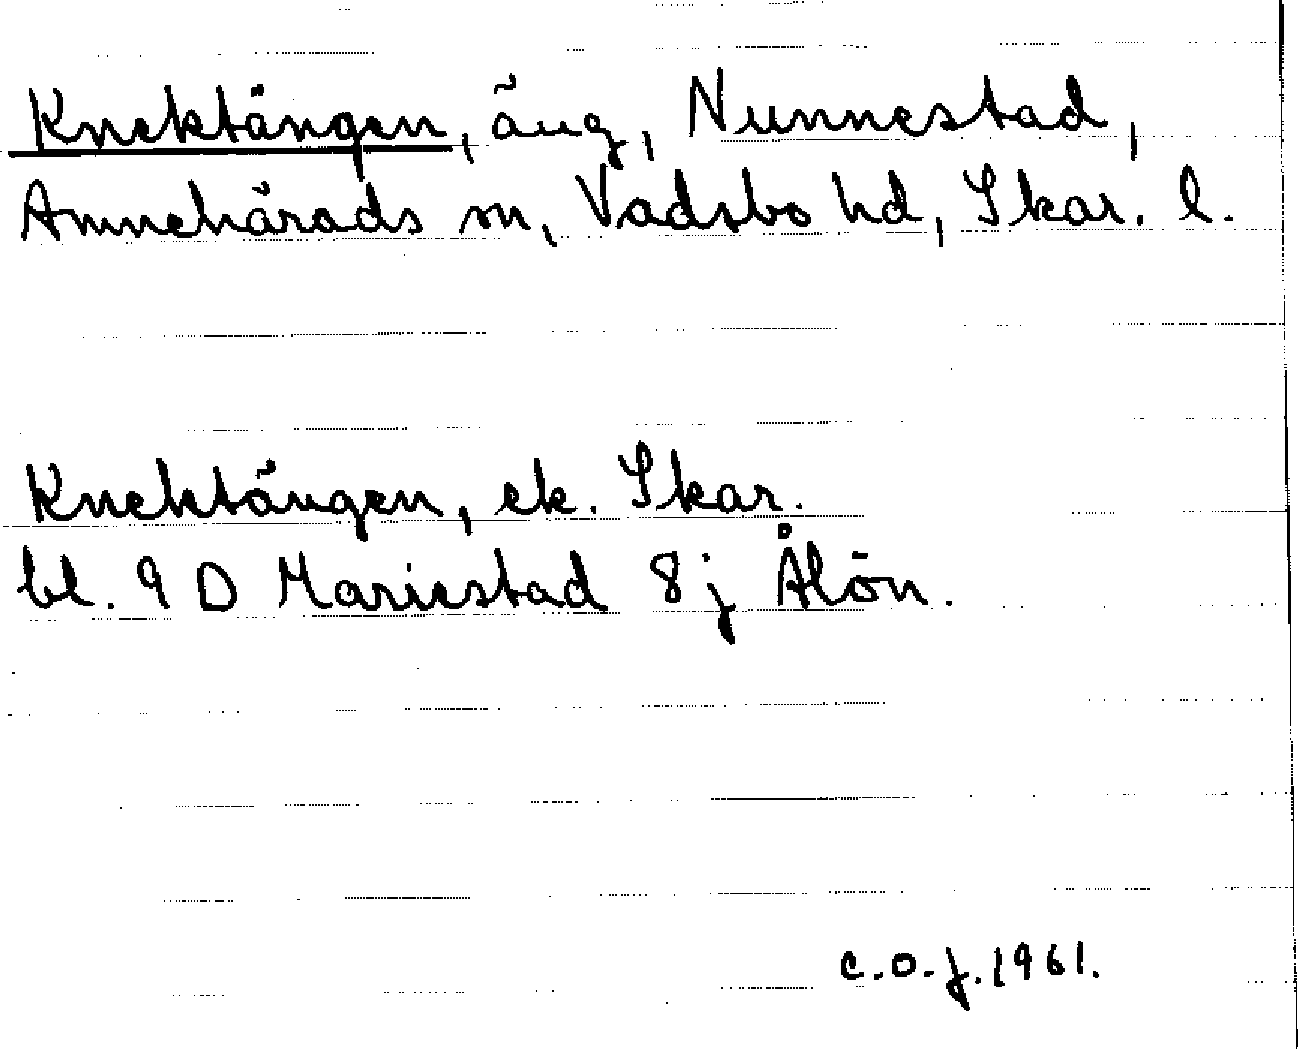 Knektängen, äng, Nunnestad,
Amnehärads sn, Vadsbo hd, Skar. l.
Knektängen, ek. Skar.
bl. 9 D Mariestad 8j Ålön.
C.O.J. 1961.